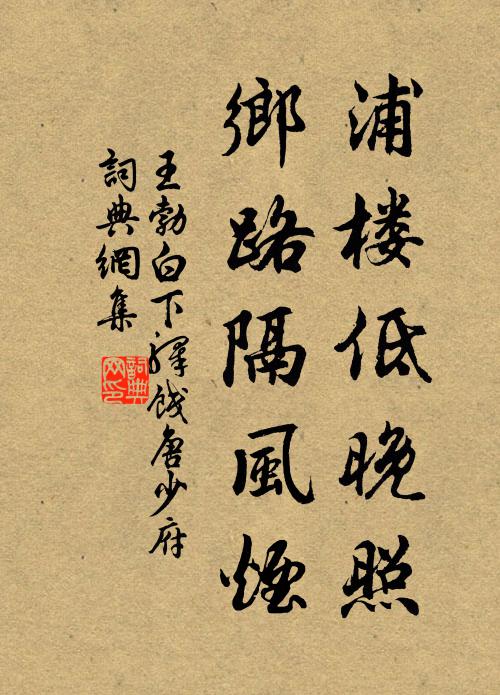 浦楼低晚照
鄉路隔風煙
王勃白下驛餞唐少府
詞典網集
詞典
网印